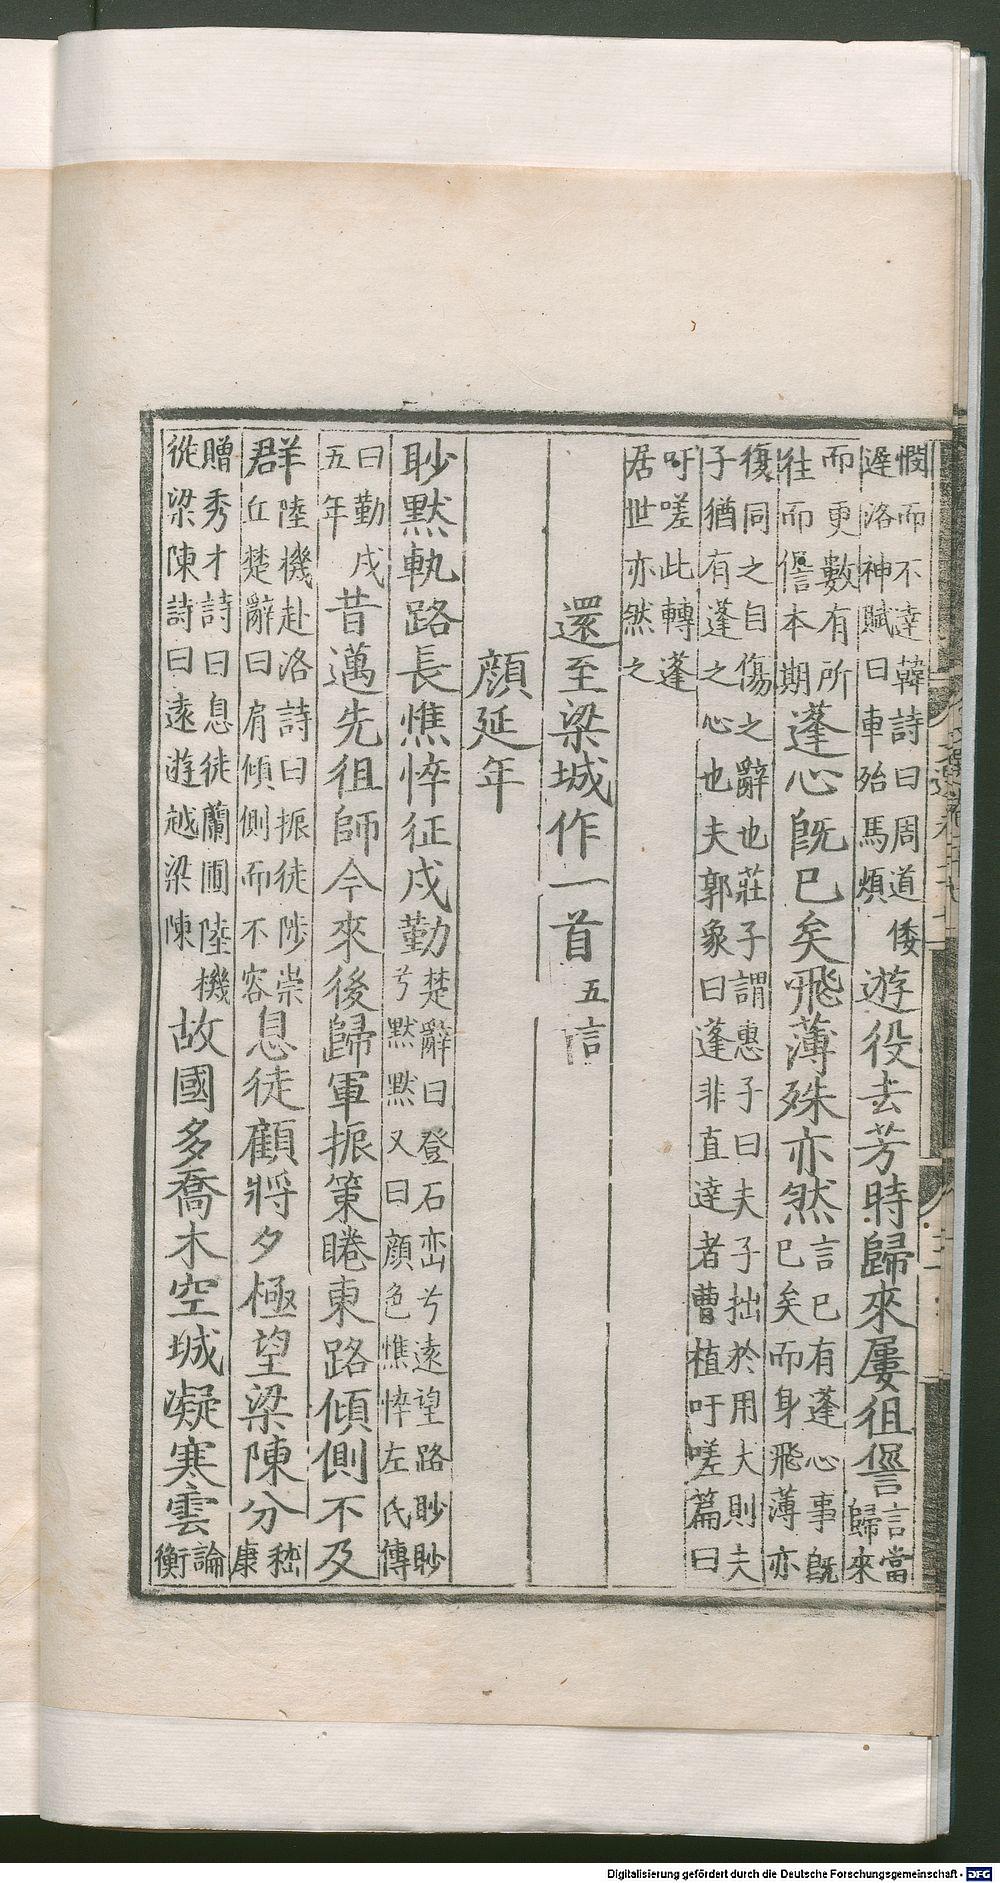 憫而不達韓詩曰周道倭遲洛神賦曰車殆馬煩遊役去芳時歸來屢徂諐言當歸來
而更數有所往而諐本期蓬心旣已矣飛薄殊亦然言已有蓬心事旣已矣而身飛薄亦
復同之自傷之辭也莊子謂惠子曰夫子拙於用大則夫子猶有蓬之心也夫郭象曰蓬非直達者曹植吁嗟篇曰
吁嗟此轉蓬居世亦然之
還至梁城作一首五言
顔延年
眇默軌路長憔悴征戍勤楚辭曰登石巒兮遠望路眇眇兮默默又曰顔色憔悴左氏傳
曰勤戍五年昔邁先徂師今來後歸軍振策睠東路傾側不及
群陸機赴洛詩曰振徒陟崇丘楚辭曰肩傾側而不容息徒顧將夕極望梁陳分嵇康
贈秀才詩曰息徒蘭圃陸機從梁陳詩曰遠遊越梁陳故國多喬木空城凝寒雲論衡
Digitalisierung gefördert durch die Deutsche Forschungsgemeinschaft - DFG